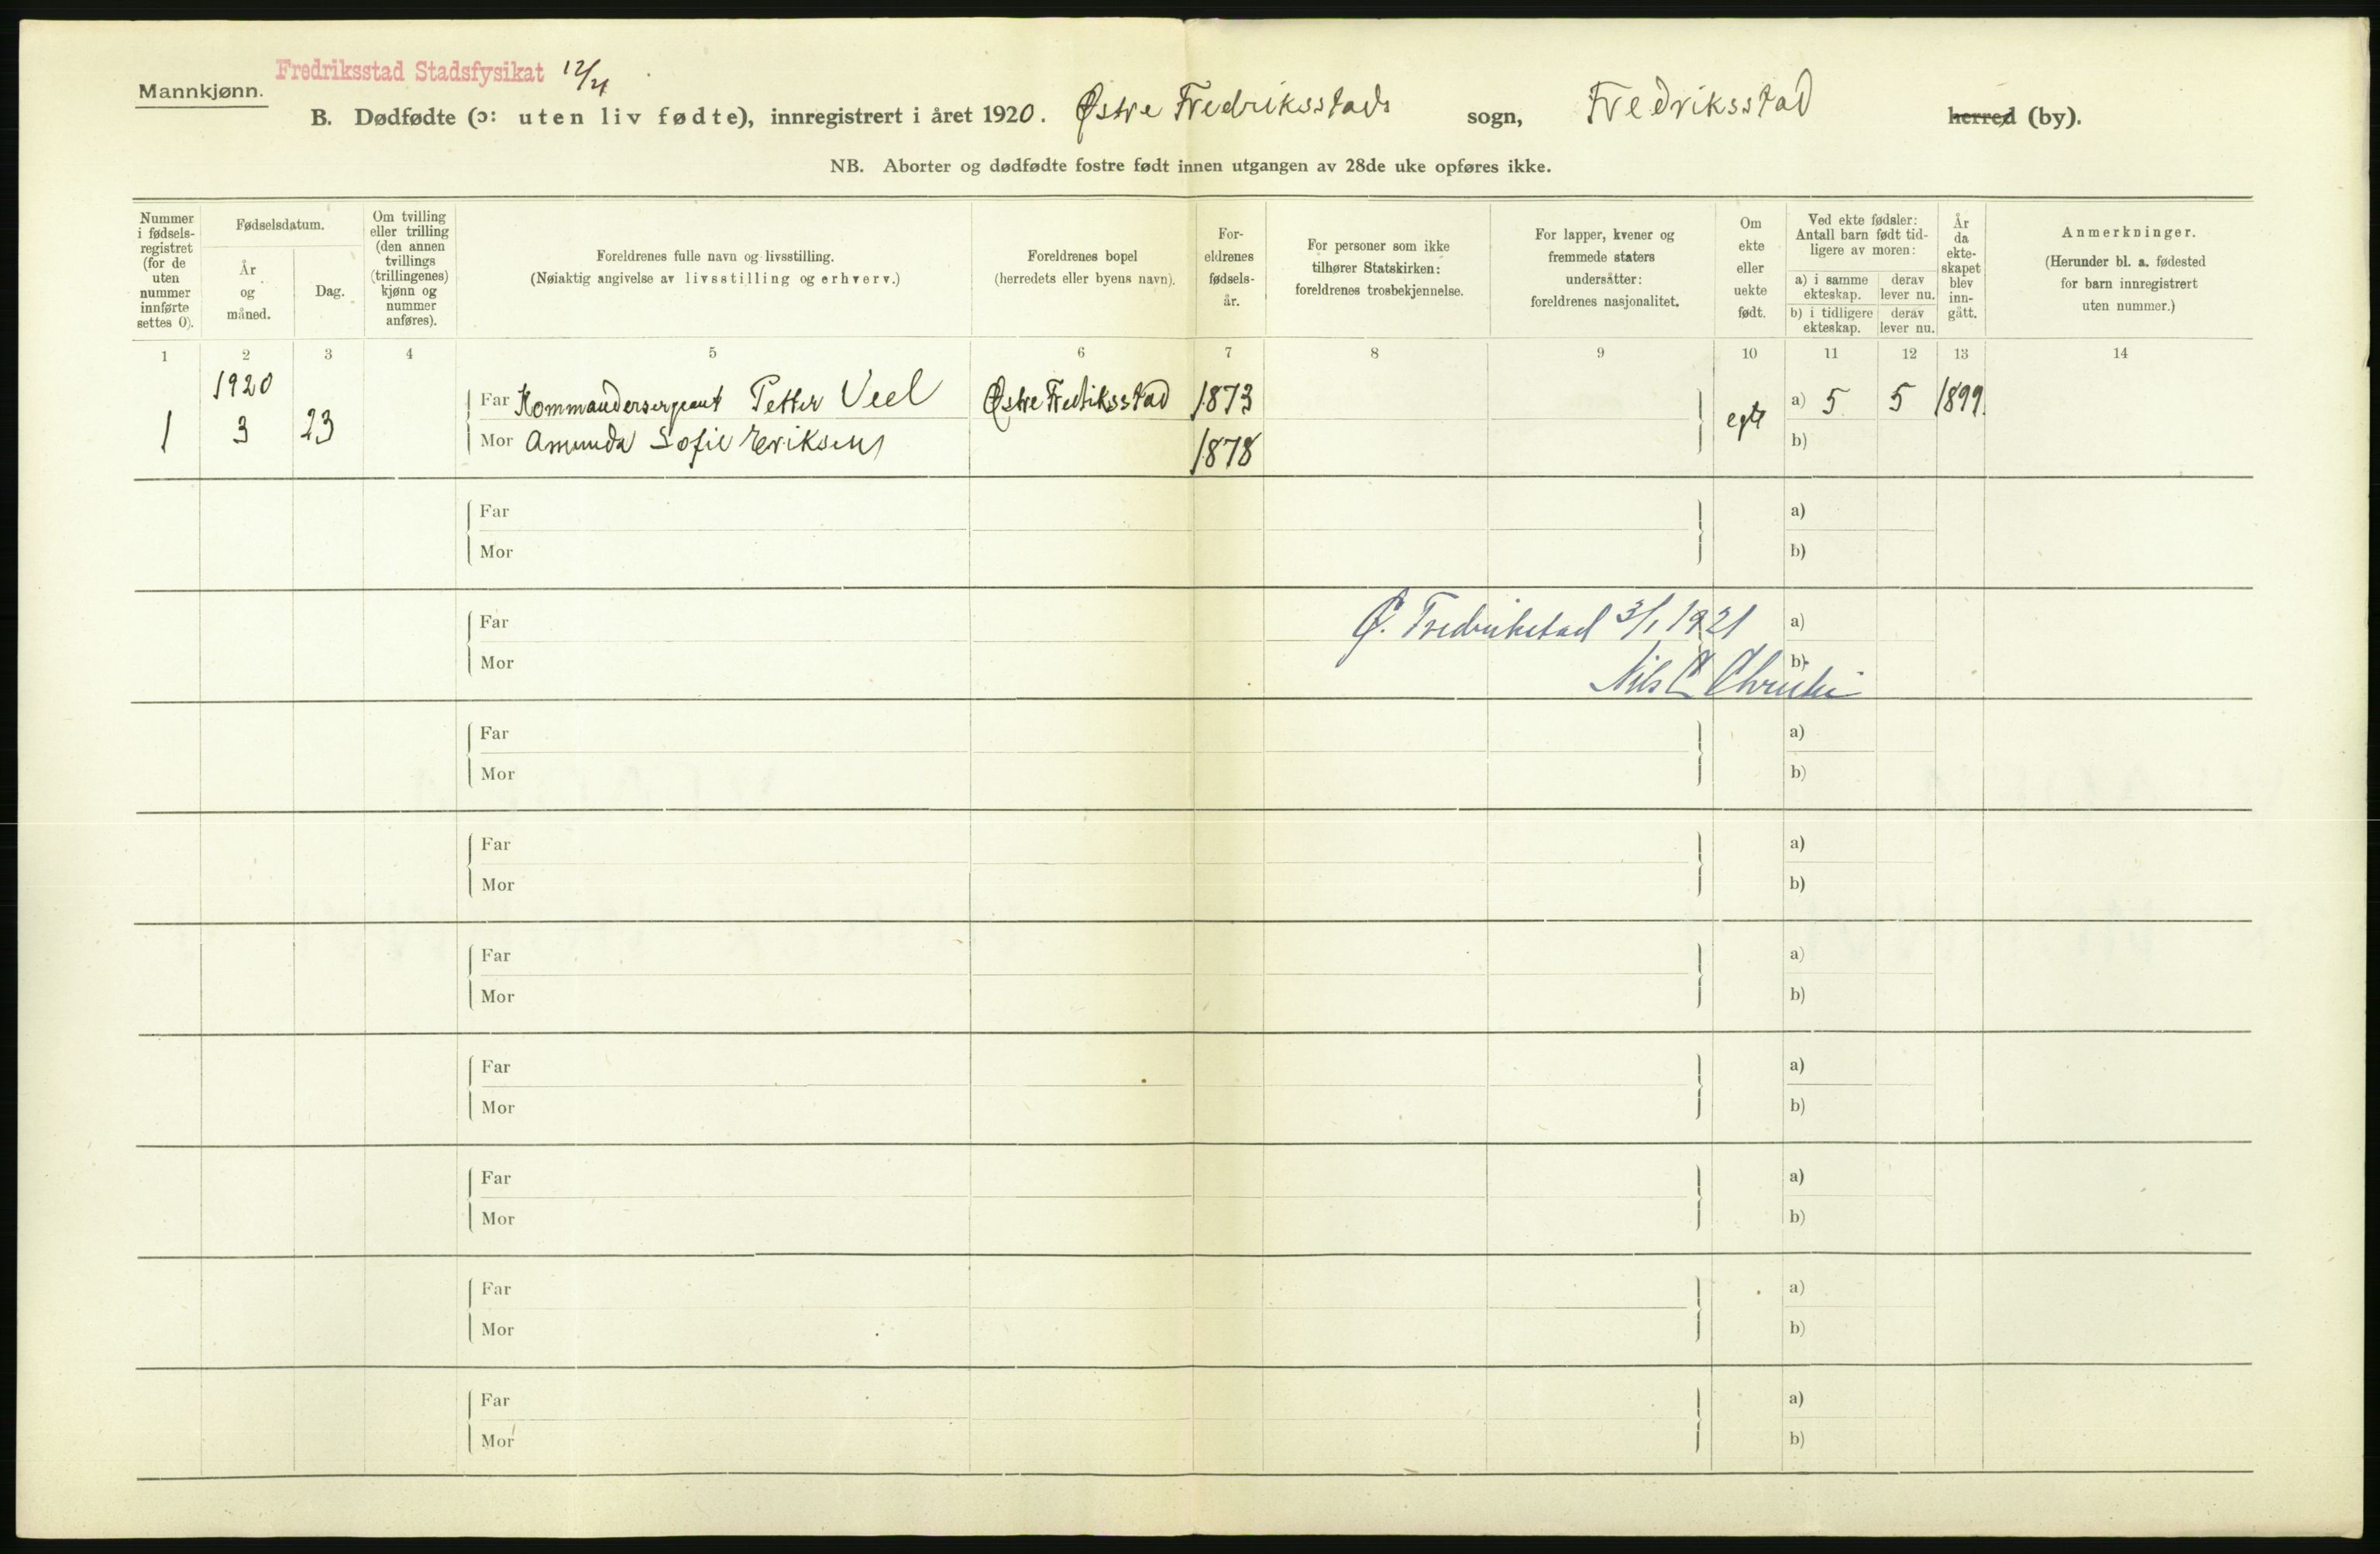 Fredriksstad Stadsfysikat 12/21
Mannkjønn.
B. Dødfødte (ɔ: uten liv fødte), innregistrert i året 1920. Østre Fredriksstads sogn, Fredriksstad herred (by).
NB. Aborter og dødfødte fostre født innen utgangen av 28de uke opføres ikke.
Nummer i fødsels-registret (for de uten nummer innførte settes 0).
Fødselsdatum.
År og måned.
Dag.
Om tvilling eller trilling (den annen tvillings (trillingenes) kjønn og nummer anføres).
Foreldrenes fulle navn og livsstilling.
(Nøiaktig angivelse av livsstilling og erhverv.)
Foreldrenes bopel
(herredets eller byens navn).
For-eldrenes fødsels-år.
For personer som ikke tilhører Statskirken: foreldrenes trosbekjennelse.
For lapper, kvener og fremmede staters undersåtter: foreldrenes nasjonalitet.
Om ekte eller uekte født.
Ved ekte fødsler: Antall barn født tid-ligere av moren:
a) i samme ekteskap.
derav lever nu.
b) i tidligere ekteskap.
derav lever nu.
År da ekte-skapet blev inn-gått.
Anmerkninger.
(Herunder bl. a. fødested for barn innregistrert uten nummer.)
1 2 3 4 5 6 7 8 9 10 11 12 13 14
1920
Far Kommandersergeant Petter Veel Østre Fredriksstad 1873 egte a) 5 5 1899.
1 3 23 Mor Amunda Sofie Eriksen 1878 b)
Far a)
Mor b)
Far Ø. Fredrikstad 3/1 1921 a)
Mor Nils C Christie b)
Far a)
Mor b)
Far a)
Mor b)
Far a)
Mor b)
Far a)
Mor b)
Far a)
Mor b)
Far a)
Mor b)
Far a)
Mor b)